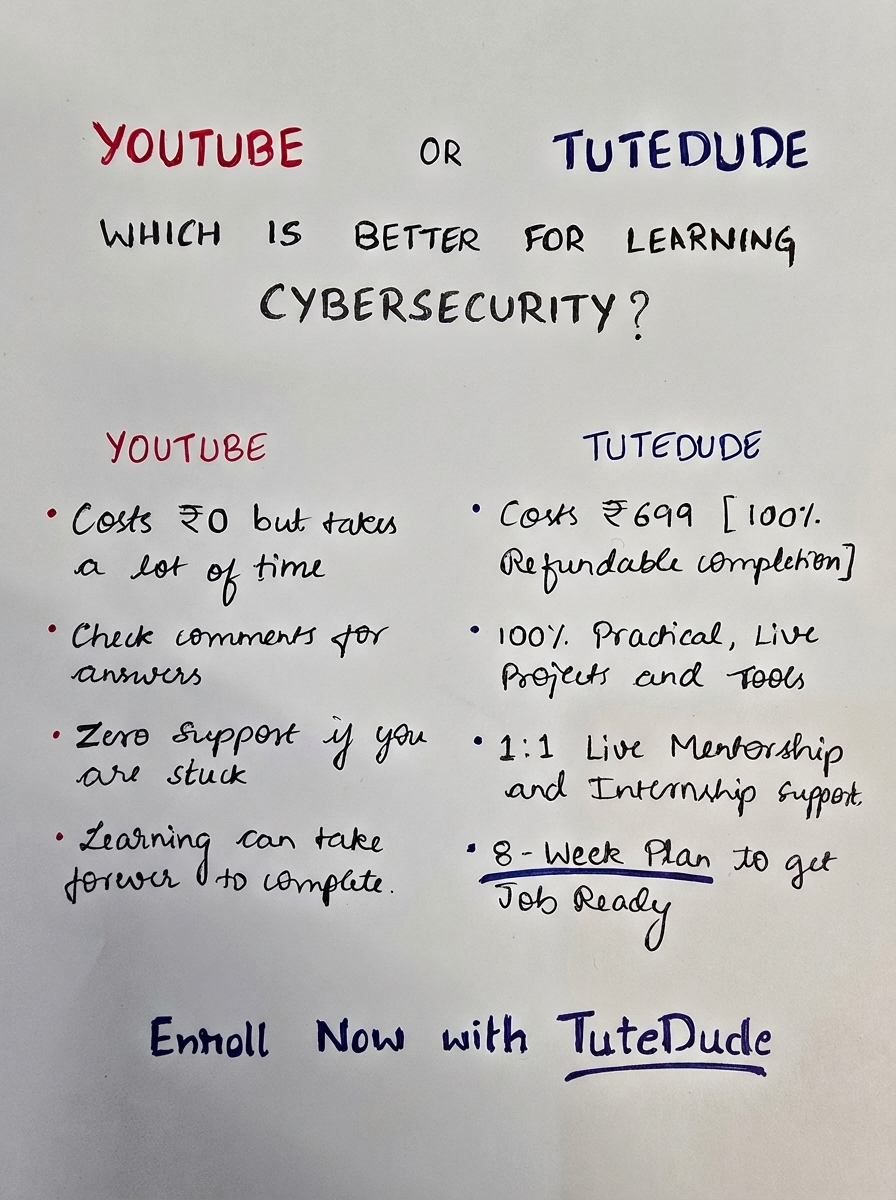 YOUTUBE OR TUTEDUDE
WHICH IS BETTER FOR LEARNING
CYBERSECURITY?
YOUTUBE
• Costs ₹0 but takes
a lot of time
• Check comments for
answers
• Zero support if you
are stuck
• Learning can take
forever to complete.
TUTEDUDE
• Costs ₹699 [100%
Refundable completion]
• 100% Practical, Live
Projects and Tools
• 1:1 Live Mentorship
and Internship support.
• 8-Week Plan to get
Job Ready
Enroll Now with TuteDude